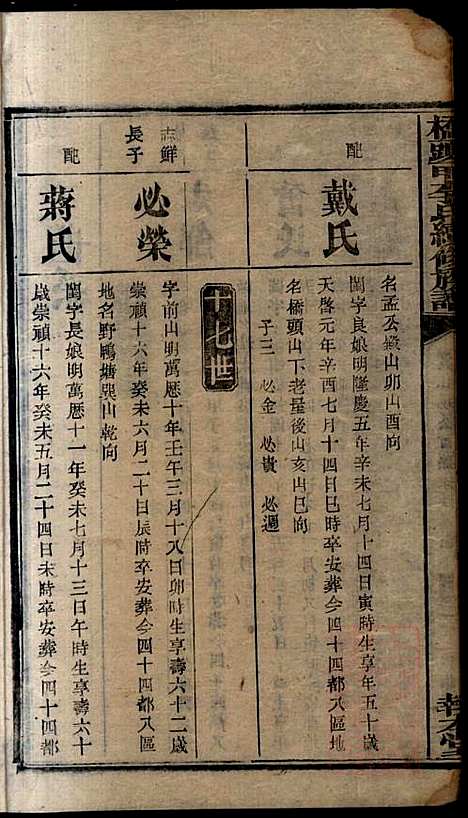 名孟公嶺山卯山酉向
配
戴氏
閨字良娘明隆慶五年辛未七月十四日寅時生享年五十歲
天啓元年辛酉七月十四日巳時卒安葬今四十四都入區地
名橋頭山下老屋後山亥山巳向
子三　必金　必貴　必遇
十七世
志鮮
長子
必榮
字前山明萬曆十年壬午三月十八日卯時生享壽六十二歲
崇禎十六年癸未六月二十日辰時卒安葬今四十四都入區
地名野鴨塘巽山乾向
配
蔣氏
閨字長娘明萬曆十一年癸未七月十三日午時生享壽六十
歲崇禎十六年癸未五月二十四日未時卒安葬今四十四都